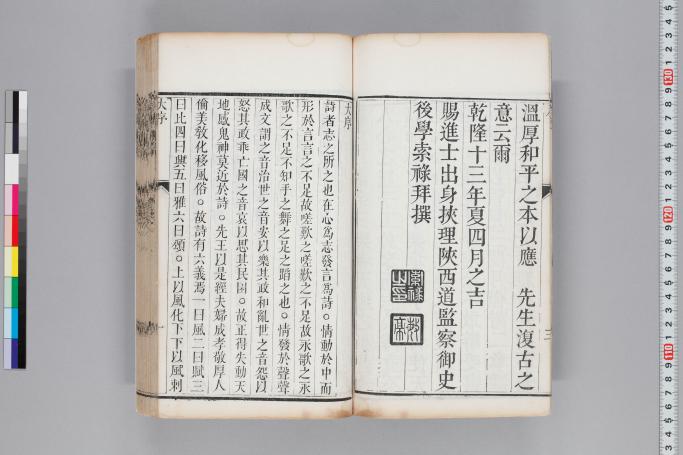 溫厚和平之本以應　先生復古之
意云爾
乾隆十三年夏四月之吉
賜進士出身掞理陝西道監察御史
後學索祿拜撰
大序
詩者志之所之也在心爲志發言爲詩○情動於中而
形於言言之不足故嗟歎之嗟歎之不足故永歌之永
歌之不足不知手之舞之足之蹈之也○情發於聲聲
成文謂之音治世之音安以樂其政和亂世之音怨以
怒其政乖亡國之音哀以思其民困○故正得失動天
地感鬼神莫近於詩○先王以是經夫婦成孝敬厚人
倫美教化移風俗○故詩有六義焉一曰風二曰賦三
曰比四曰興五曰雅六曰頌○上以風化下下以風刺
大序